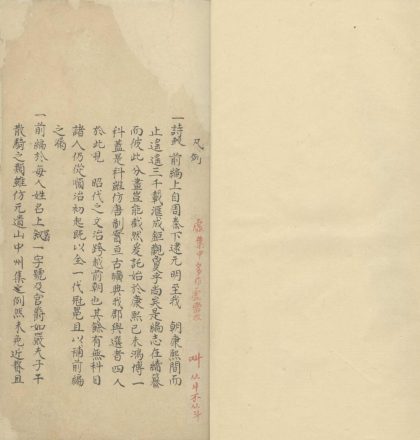 凡例
一詩䥽 前編上自周秦下逮元明至我 朝康熙間而
止遙遙三千載滙成鉅觀夐乎尚矣是編志在續纂
而彼此分畫豈能截然爰託始於康熙己未鴻博一
科蓋是科雖仿唐制實亘古曠典我郡與選者四人
於此見 昭代之文治跨越前朝也其餘有無科目
諸人仍從順治初起既以全一代冠冕且以補前編
之漏
一前編於每人姓名上 一字號及官爵如 夫子干
散騎之類雖仿元遺山中州集案例然未免近瞀且